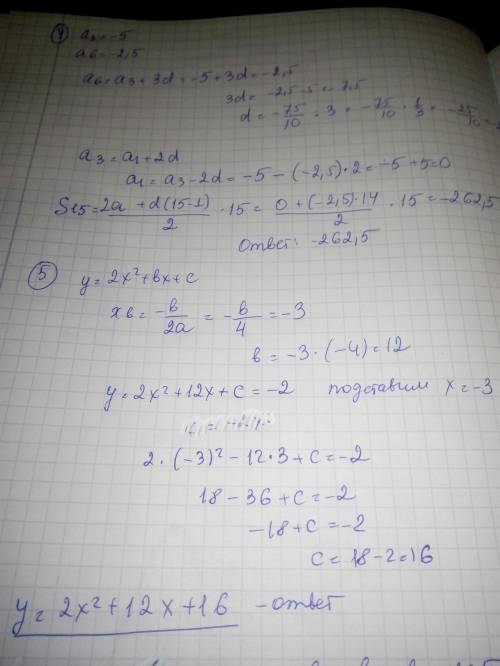 ④ a₃=-5
a₆=-2,5
a₆=a₃+3d=-5+3d=-2,5
3d=-2,5-5=-7,5
d=-75/10 : 3=-75/10 · 1/3=-25/10
a₃=a₁+2d
a₁=a₃-2d=-5-(-2,5)·2=-5+5=0
S₁₅=2a+d(15-1)/2 · 15=0+(-2,5)·14/2 · 15=-262,5
Ответ: -262,5
⑤ y=2x²+вx+c
xв=-в/2a=-в/4=-3
в=-3·(-4)=12
y=2x²+12x+c=-2 подставим x=-3
2·(-3)²-12·3+c=-2
18-36+c=-2
-18+c=-2
c=18-2=16
y=2x²+12x+16 -ответ